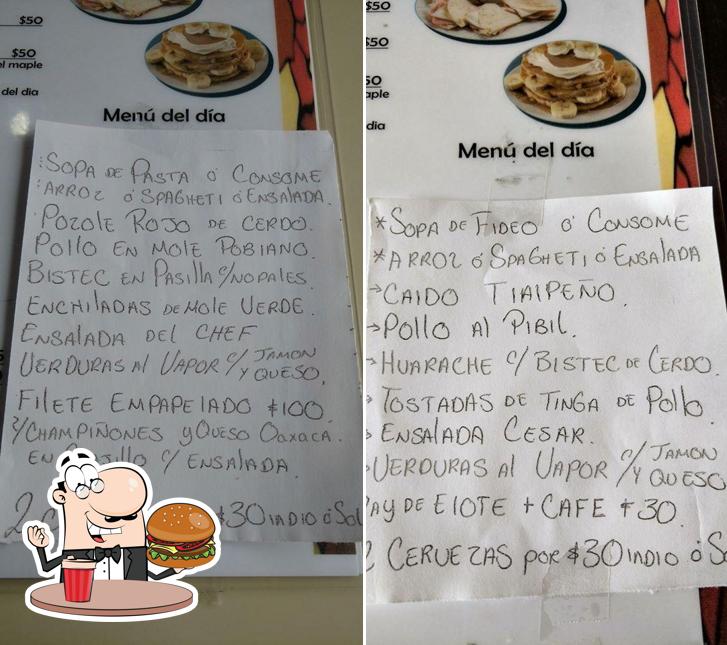 $50
$50
el maple
del dia
Menú del día
:SOPA DE PASTA Ó CONSOME
:ARROZ Ó SPAGHETI Ó ENSALADA.
POZOLE ROJO DE CERDO.
POLLO EN MOLE POBlANO.
BISTEC EN PASILLA C/NOPALES.
ENCHILADAS DE MOLE VERDE.
ENSALADA DEL CHEF
VERDURAS Al VAPOR C/ JAMON
Y QUESO,
FILETE EMPAPELADO $100
C/CHAMPIÑONES y QUESO OAXACA.
EN C/ ENSALADA.
2 $30 INDIO Ó SOL
$50
$50
50
aple
dia
Menú del día
*SOPA DE FIDEO Ó CONSOME
*ARROZ Ó SPAGHETI Ó ENSALADA
→CALDO TLALPEÑO.
→POLLO Al PIBIL.
→HUARACHE C/ BISTEC DE CERDO.
→TOSTADAS DE TINGA DE POLLO.
→ENSALADA CESAR.
→VERDURAS Al VAPOR C/ JAMON
/Y QUESO
PAY DE ELOTE + CAFE $30
2 CERVEZAS POR $30 INDIO Ó SO